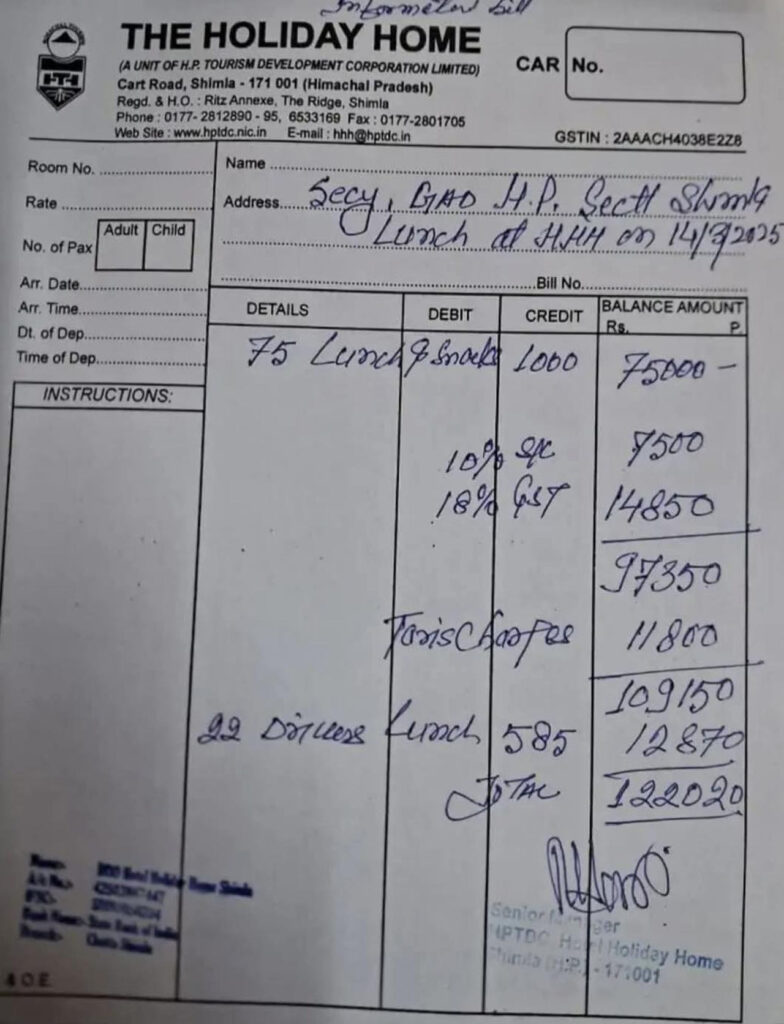 Information bill
THE HOLIDAY HOME
(A UNIT OF H.P. TOURISM DEVELOPMENT CORPORATION LIMITED)
Cart Road, Shimla - 171 001 (Himachal Pradesh)
Regd. & H.O. : Ritz Annexe, The Ridge, Shimla
Phone : 0177- 2812890 - 95, 6533169 Fax : 0177-2801705
Web Site : www.hptdc.nic.in E-mail : hhh@hptdc.in
CAR No.
GSTIN : 2AAACH4038E2Z8
Room No.
Rate
No. of Pax
Adult Child
Arr. Date
Arr. Time
Dt. of Dep.
Time of Dep.
INSTRUCTIONS:
Name
Address Secy, GAD H.P. Sectt Shimla
Lunch at HHH on 14/3/2025
Bill No.
DETAILS DEBIT CREDIT BALANCE AMOUNT
Rs. P.
75 Lunch & Snacks 1000 75000 -
10% S/C 7500
18% GST 14850
97350
Charges 11800
109150
22 Drivers Lunch 585 12870
TOTAL 122020
Senior Manager
HPTDC Hotel Holiday Home
Shimla (H.P.) - 171001
Name:- Hotel Holiday Home Shimla
A/c No.:-
IFSC:-
Bank Name:- State Bank of India
Branch:- Shimla